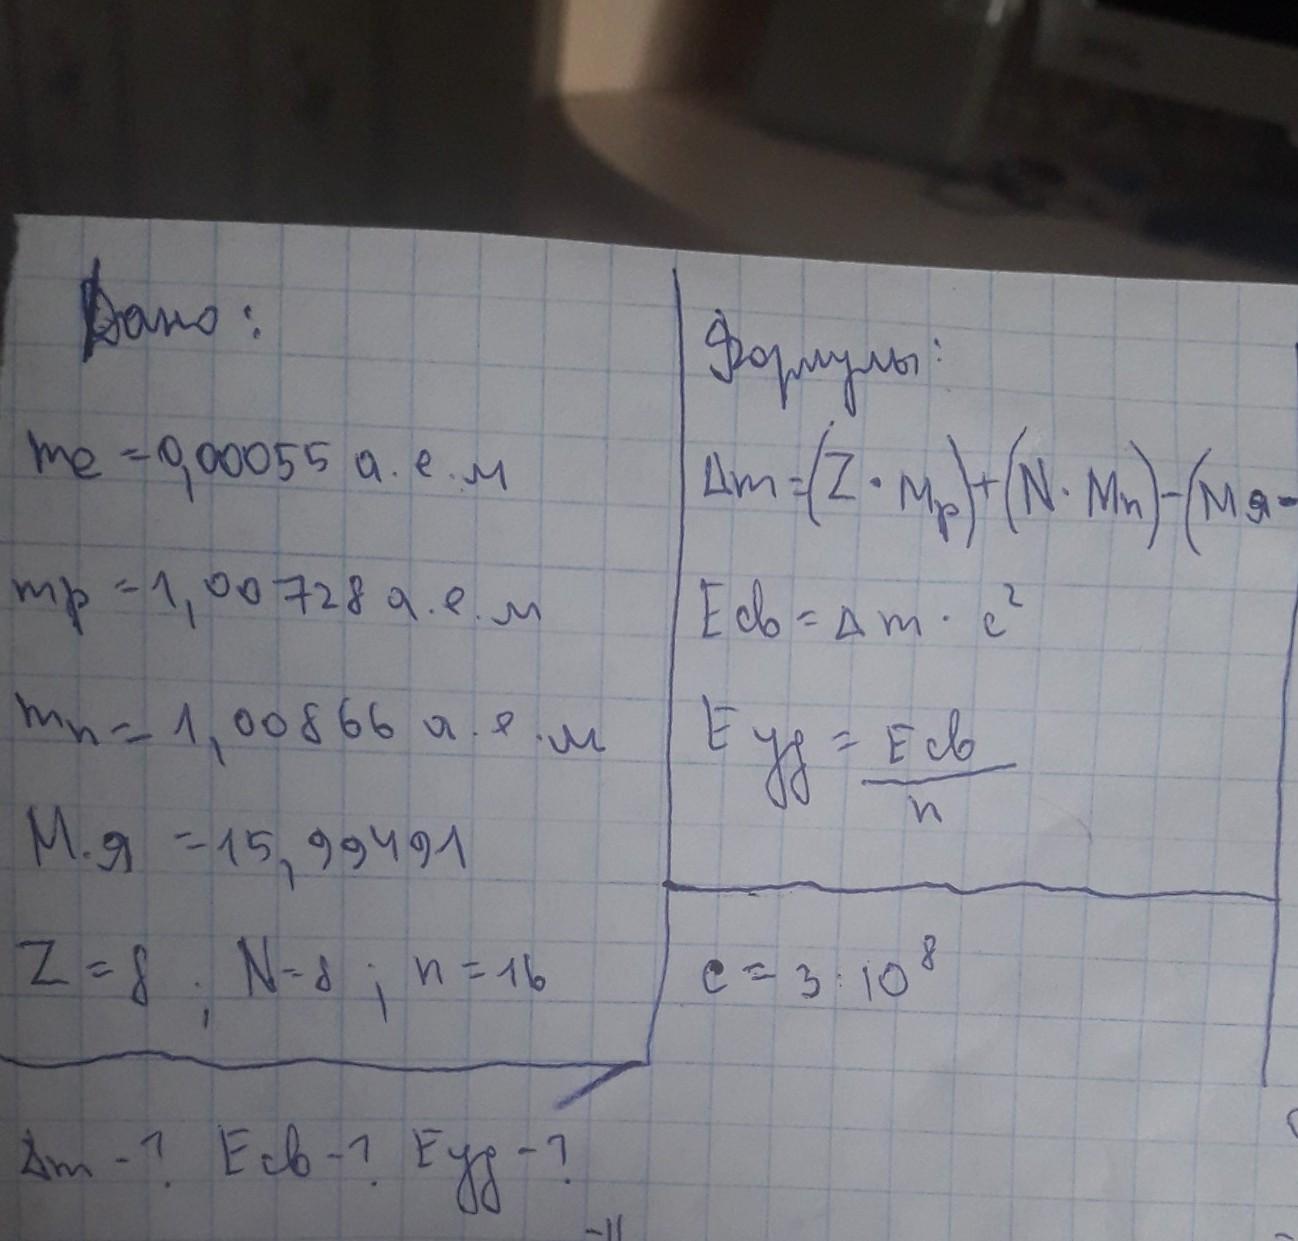 Дано:
me = 0,00055 а.е.м
mp = 1,00728 а.е.м
mn = 1,00866 а.е.м
М.я = 15,99491
Z = 8 ; N = 8 ; n = 16
Δm - ? Eсв - ? Eуд - ?
-11
Формулы:
Δm = (Z · Mp) + (N · Mn) - (Mя -
Eсв = Δm · c²
Eуд = Eсв
n
c = 3 · 10⁸